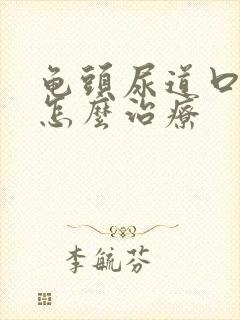 龟頭尿道口
怎麼治療
李毓芬